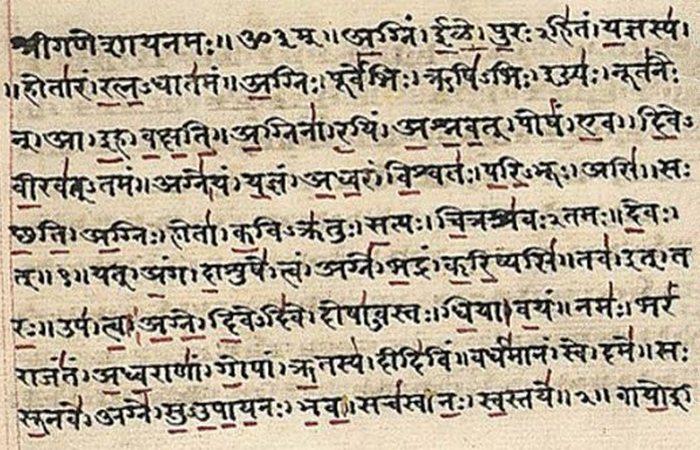 श्रीगणेशायनमः॥ॐ३म्॥अ॒ग्निं।ई॒ळे॒।पु॒रःऽहि॑तं।य॒ज्ञस्य॑।
॥होता॑रं।र॒त्न॒ऽधात॑मं॥अ॒ग्निः।पूर्वे॑भिः।ऋषि॑ऽभिः।ईड्यः॑।नूत॑नैः
न्।आ।इ॒ह।व॒क्ष॒ति॒॥अ॒ग्निना॑।र॒यिं।अ॒श्न॒व॒त्।पोषं॑।ए॒व।दि॒वेऽ
वी॒रव॑त्ऽतमं॥अग्ने॑।यं।य॒ज्ञं।अ॒ध्व॒रं।वि॒श्वतः॑।प॒रि॒ऽभूः।असि॑॥सः
छ॒ति॒।अ॒ग्निः।होता॑।क॒विऽक्र॑तुः।स॒त्यः।चि॒त्रश्र॑वःऽतमः।दे॒वः
त्॥१॥यत्।अं॒ग।दा॒शुषे॑।त्वं।अग्ने॑।भ॒द्रं।क॒रि॒ष्यसि॑॥तव॑।इत्।त
रः॒॥उप॑।त्वा॒।अ॒ग्ने॒।दि॒वेऽदि॑वे।दोषा॑ऽवस्तः।धि॒या।व॒यं॥नमः॑।भरं
राजं॑तं।अ॒ध्व॒राणां॑।गो॒पां।ऋ॒तस्य॑।दीदि॑विं॥वर्ध॑मानं।स्वे।दमे॑॥सः
सू॒नवे॑।अग्ने॑।सु॒ऽउ॒पा॒य॒नः।भ॒व॒॥सच॑स्व।नः॒।स्व॒स्तये॑॥२॥